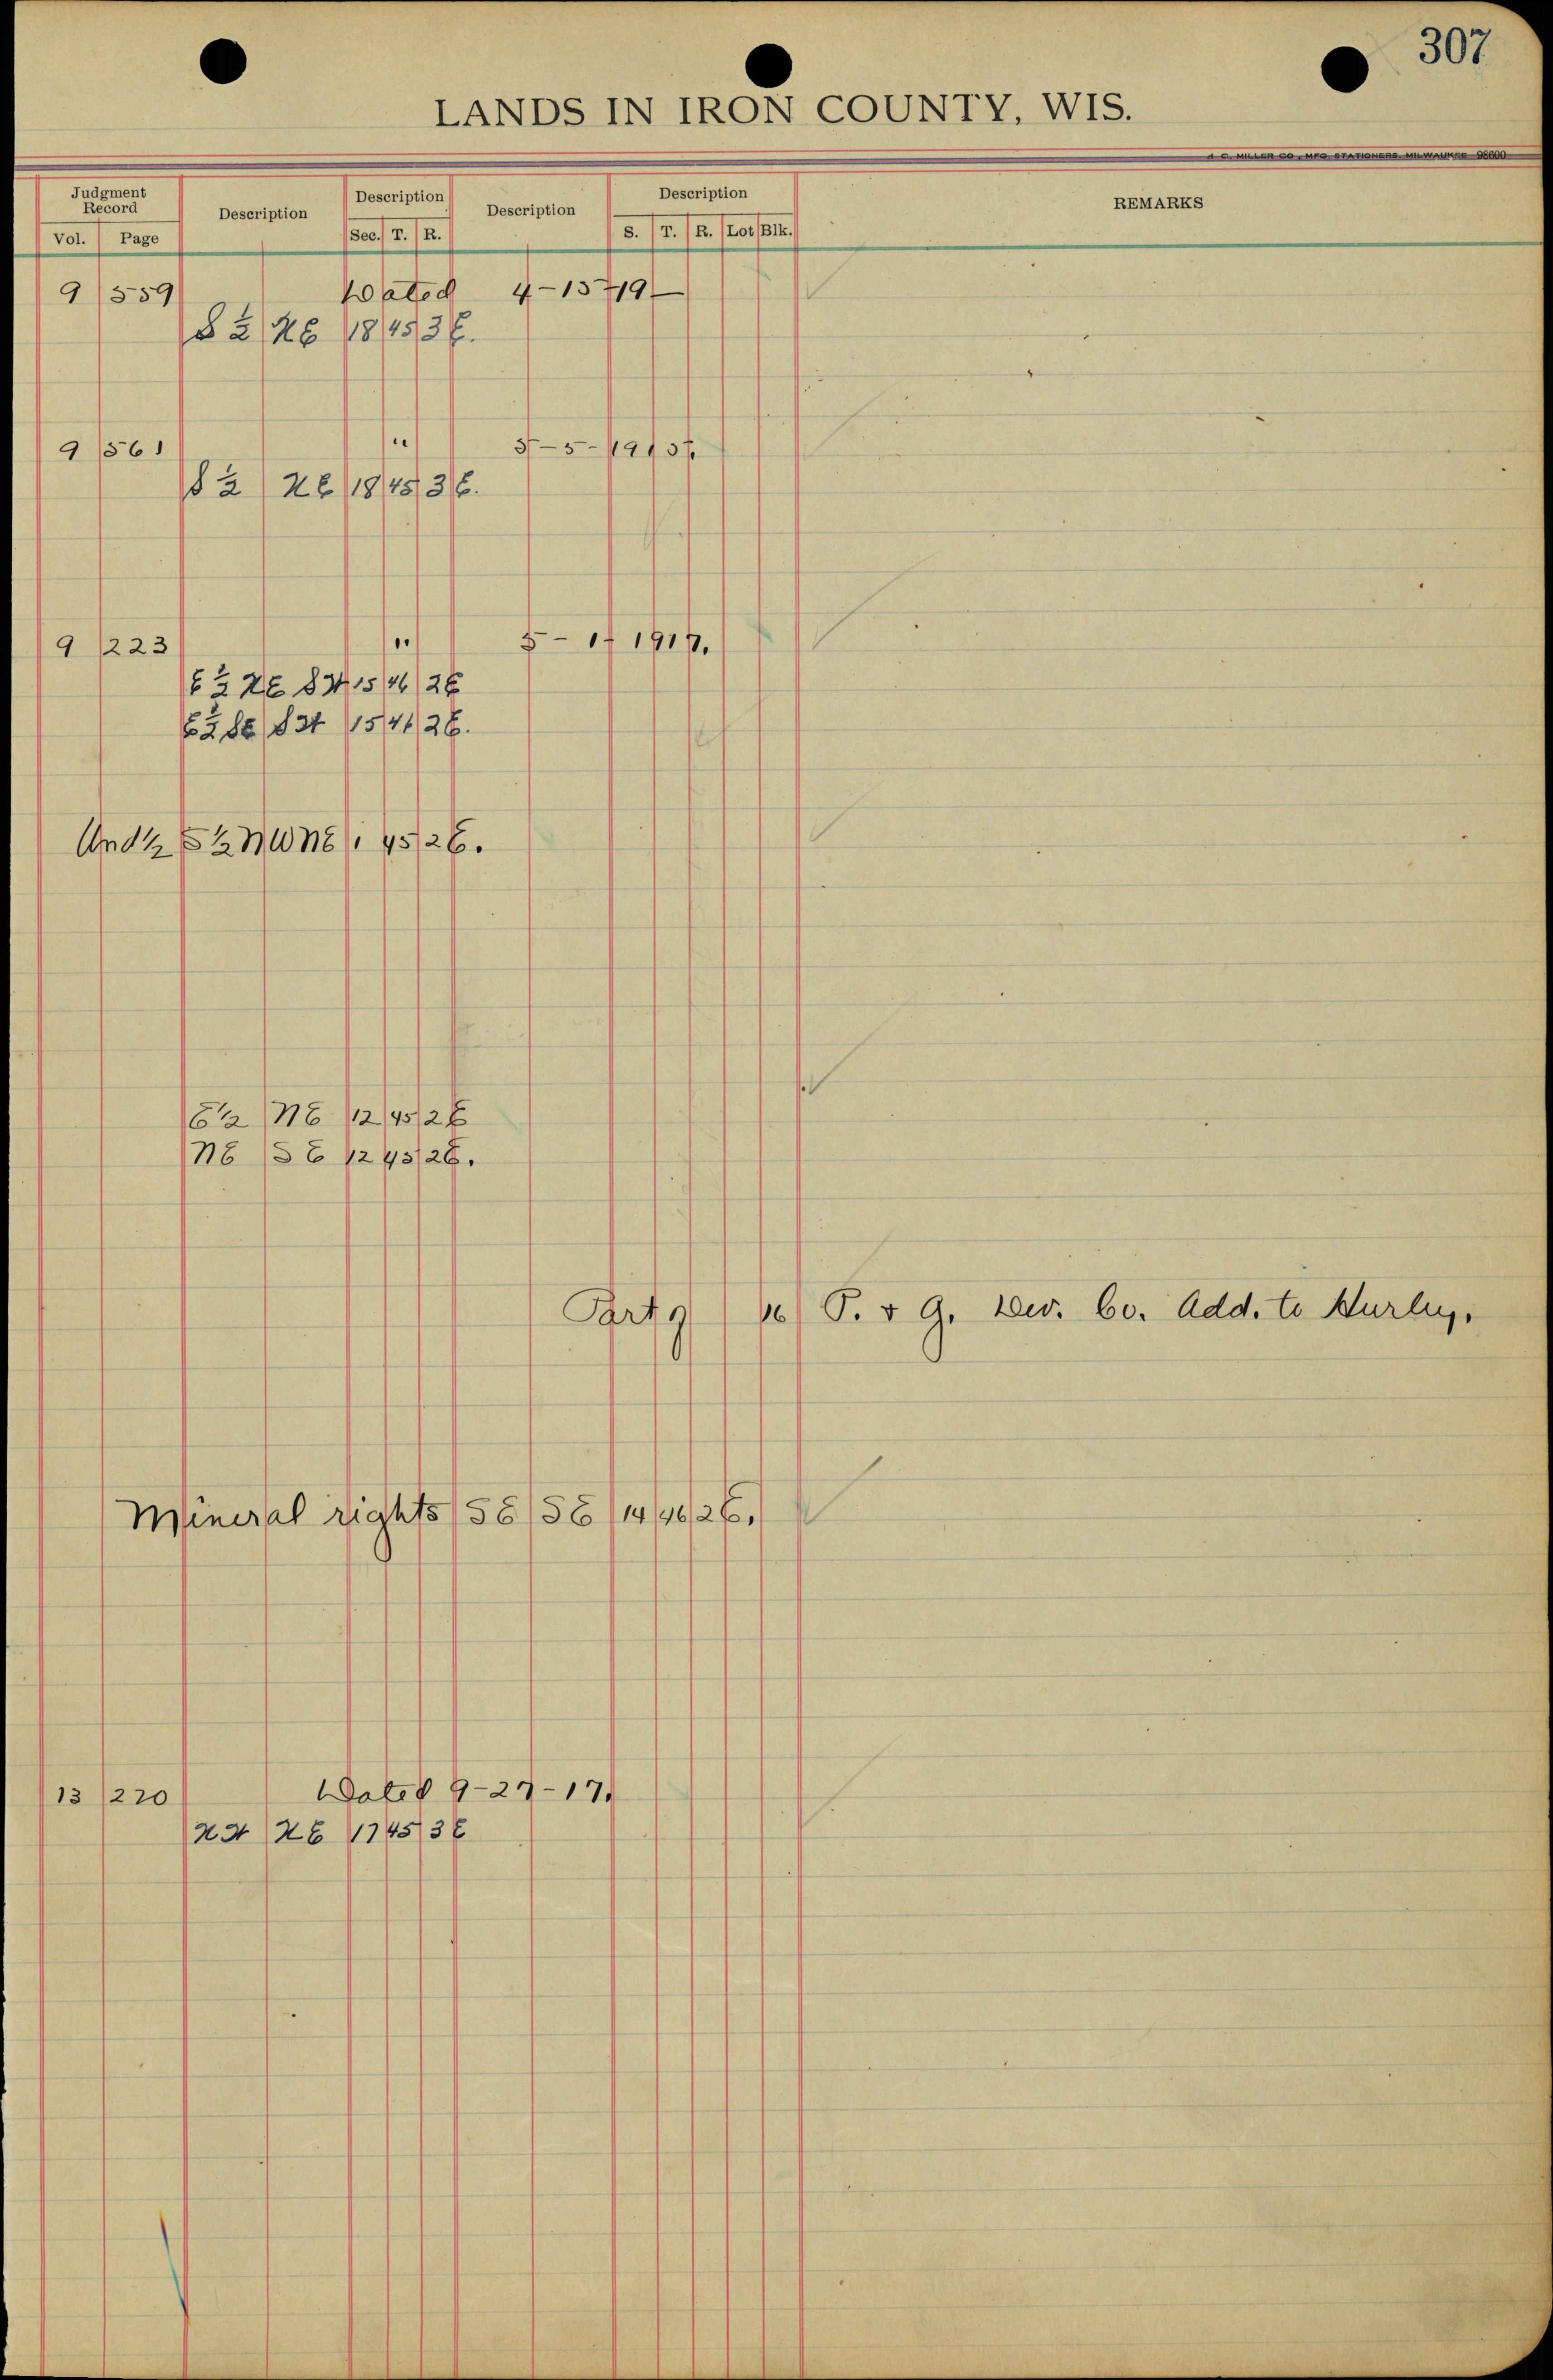 307
LANDS IN IRON COUNTY, WIS.
H. C. MILLER CO., MFG. STATIONERS, MILWAUKEE 98600
Judgment Record Description Description Description Description REMARKS
Vol. Page Sec. T. R. S. T. R. Lot Blk.
9 559 Dated 4-15-19—
S ½ NE 18 45 3E.
9 561 " 5-5-1915.
S ½ NE 18 45 3E.
9 223 " 5-1-1917.
E ½ NE SW 15 46 2E
E ½ SE SW 15 46 2E.
Und ½ S ½ NW NE 1 45 2E.
E ½ NE 12 45 2E
NE SE 12 45 2E.
Part of 16 P. & G. Dev. Co. Add. to Hurley.
Mineral rights SE SE 14 46 2E.
13 220 Dated 9-27-17.
NW NE 17 45 3E